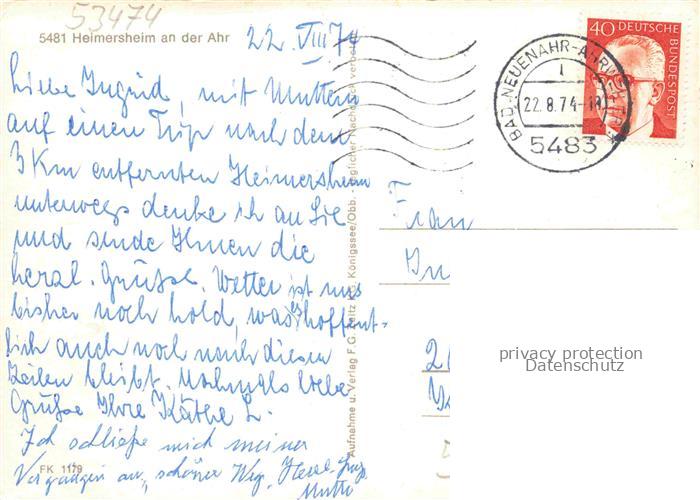 53474
5481 Heimersheim an der Ahr
22. VIII 74
Liebe Ingrid, mit Muttern
auf einen Trip nach dem
3 Km entfernten Heimersheim
unterwegs denke ich an Sie
und sende Ihnen die
herzl. Grüße. Wetter ist uns
bisher noch hold, was hoffent-
lich auch noch nach diesen
Zeilen bleibt. Nochmals liebe
Grüße Ihre Käthe L.
Ich schließe mich meiner
an, schöner Weg. Herzl.
FK 1179
Aufnahme u. Verlag F.G. Zeitz KG, Königssee/Obb.
40 DEUTSCHE
BUNDESPOST
BAD NEUENAHR-AHRWEILER
22.8.74
5483
Frau
In
2
privacy protection
Datenschutz